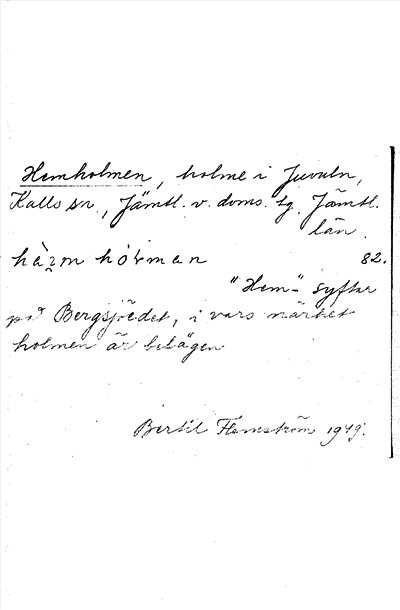 Hemholmen, holme i Juvuln,
Kalls sn., Jämtl. v. doms. tg. Jämtl.
län.
82.
"Hem-" syftar
på Bergsjöedet, i vars närhet
holmen är belägen
Bertil Flemström 1949.